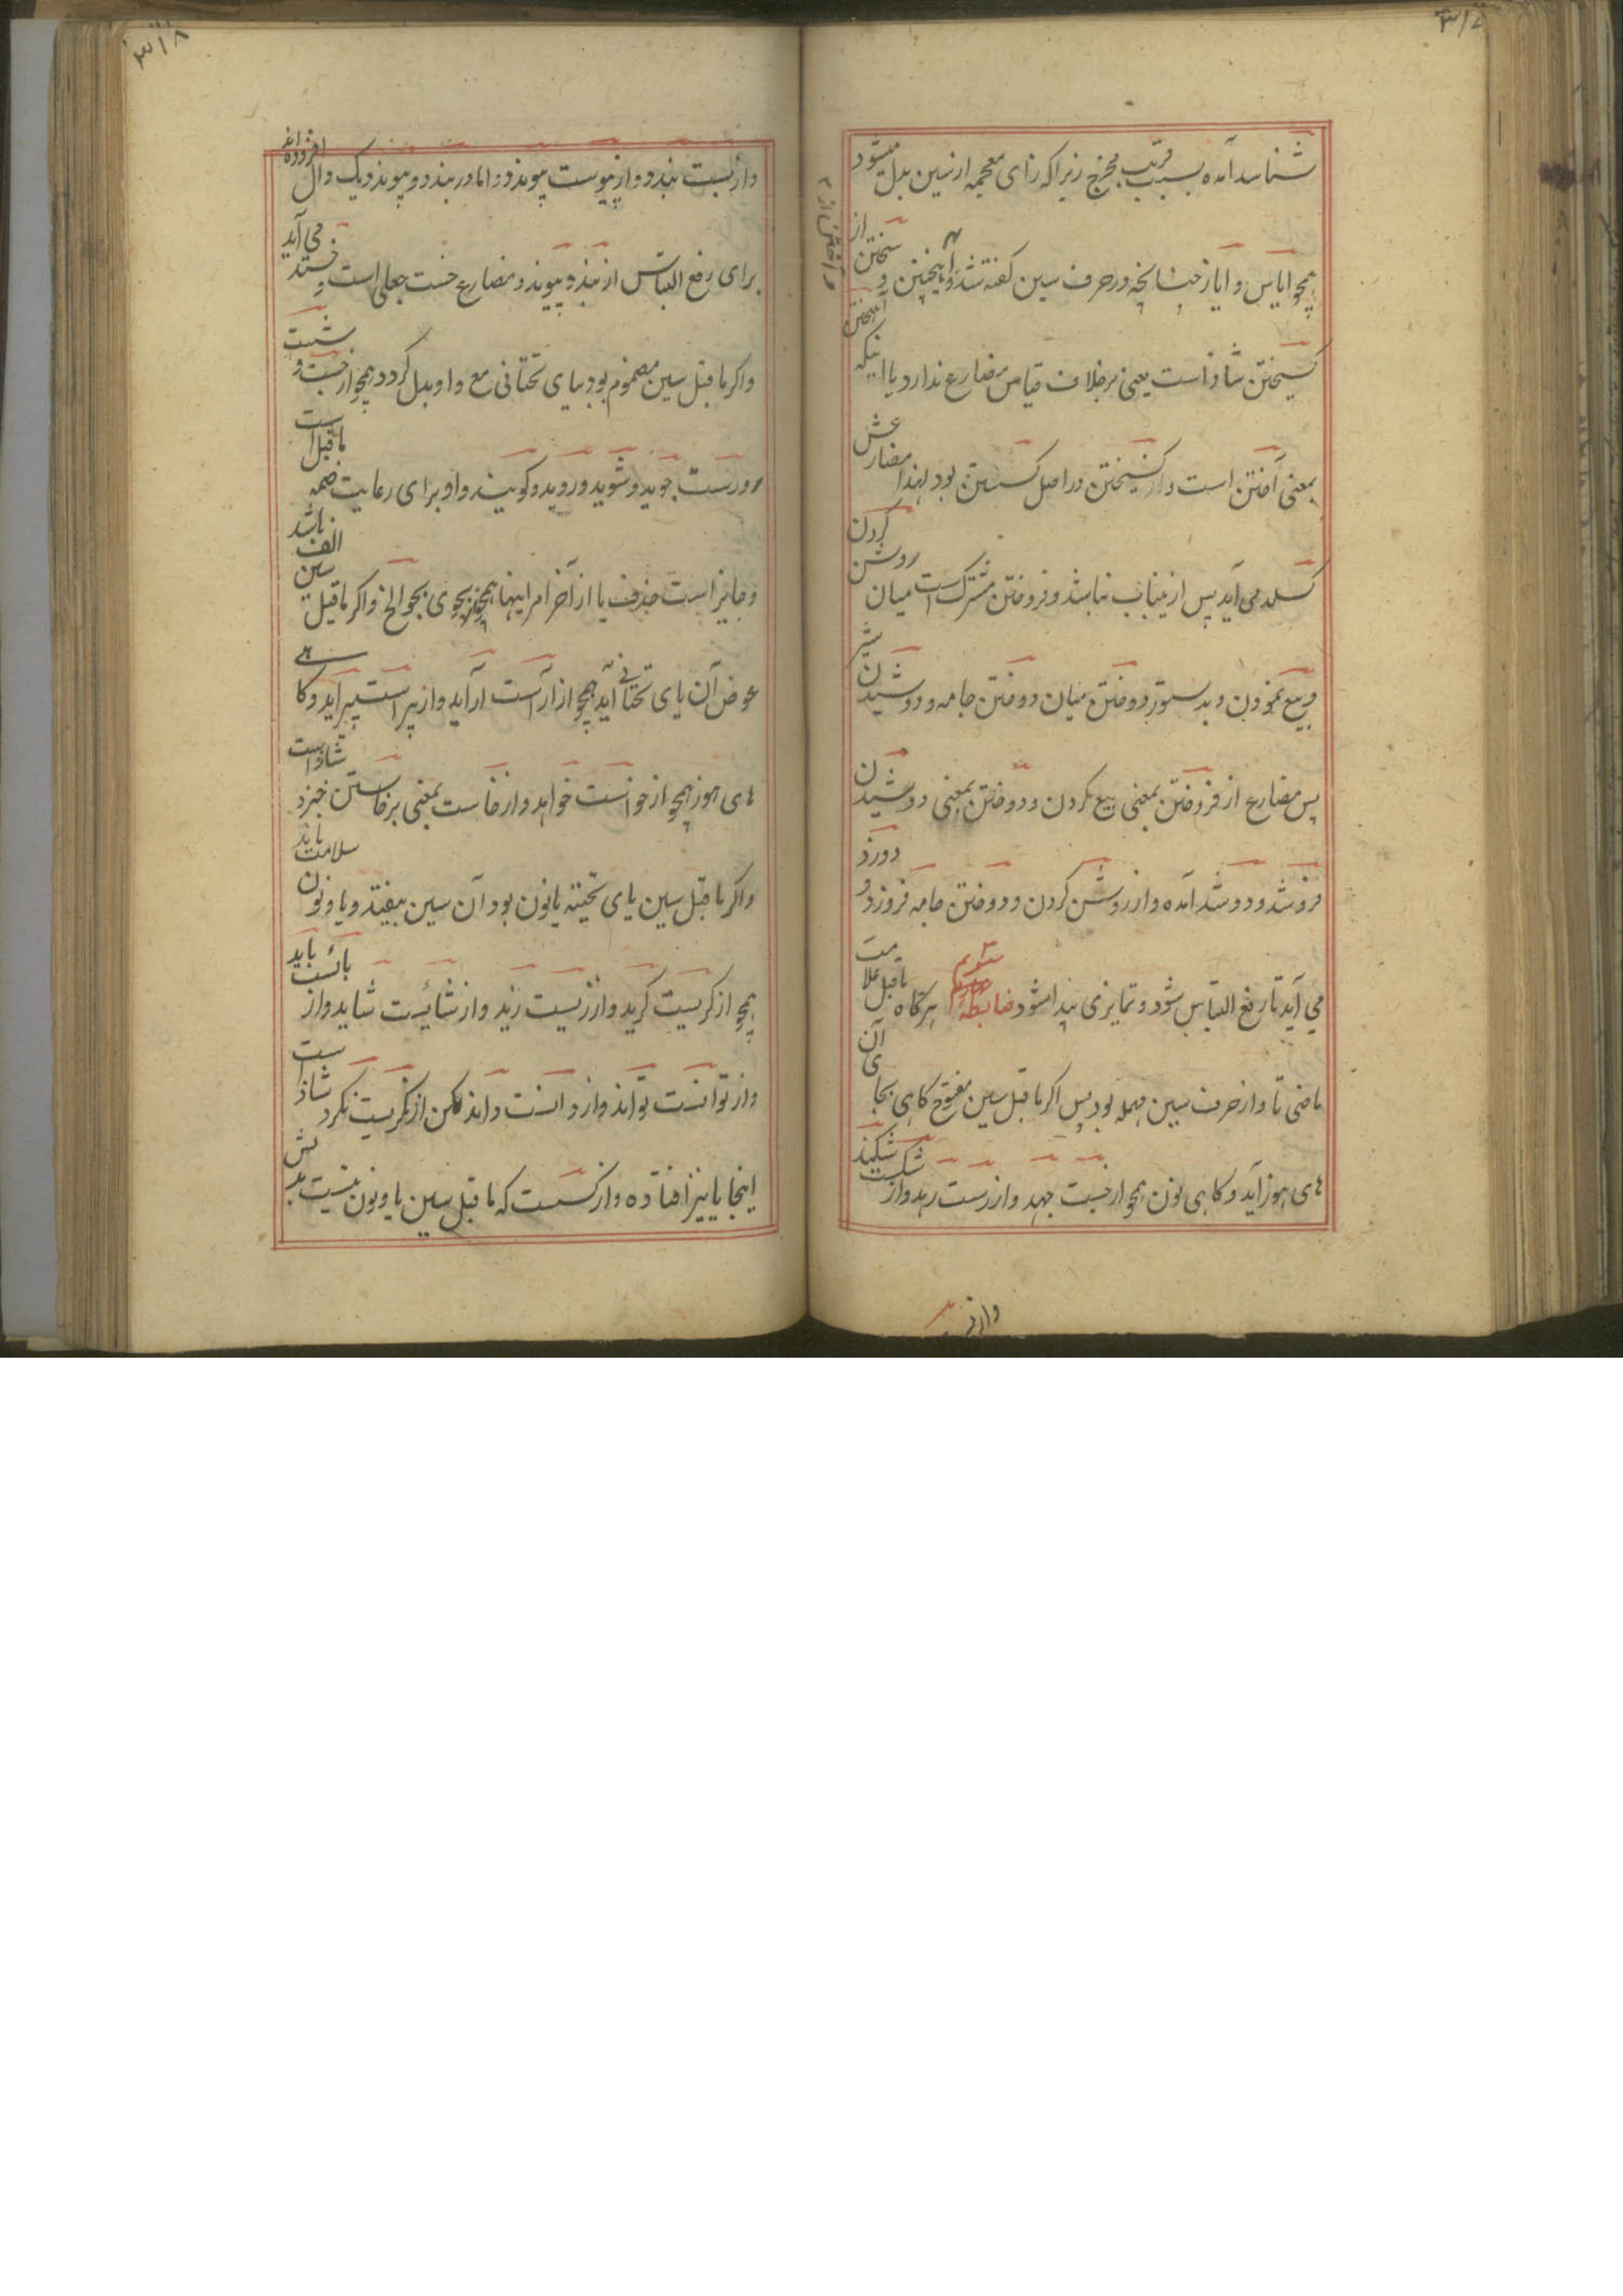 ۳۱۷
شناسد آمده بسبب قرب مخرج زیرا که زای معجمه از سین بدل میشود
همچو ایاس و ایاز چنانچه در حرف سین گفته شد و آمیختن و سختن از
گسیختن شاذ است یعنی بر خلاف قیاس مضارع ندارد یا اینکه
بمعنی آختن است و گسیختن در اصل گسستن بود لهذا مضارعش
گسلد می آید پس ازینباب نباشد و فروختن مشترک است میان روشن کردن
و بیع نمودن و بدستور دوختن میان دوختن جامه و دوشیدن شیر
پس مضارع از فروختن بمعنی بیع کردن و دوختن بمعنی دوشیدن
فروشد و دوشد آمده و از روشن کردن و دوختن جامه فروزد و دوزد
می آید تا رفع التباس شود و تمایزی پیدا شود ضابطه سویم هرگاه ماقبل علامت
ماضی تا و از حرف سین مهمله بود پس اگر ماقبل سین مفتوح گاهی بجای آن
های هوز آید و گاهی نون همچو از جست جهد و از رست رهد و از شکست شکند
و از
۳۱۸
و از بست بندد و از پیوست پیوندد و اما در بندد و پیوندد یک دال افزوده اند
برای رفع التباس از بند و پیوند و مضارع خست جعلی است خستد می آید
و اگر ماقبل سین مضموم بود بیای تحتانی مع واو بدل گردد همچو از جست و شست
و رست جوید و شوید و روید و گویند واو برای رعایت ضمه ماقبل است
و جایز است حذف یا از آخر امر اینها همچو بجوی بجو الخ و اگر ماقبل سین الف باشد
عوض آن یای تحتانی آید همچو از آراست آراید و از پیراست پیراید و گاهی
های هوز همچو از خواست خواهد و از خاست بمعنی برخاستن خیزد شاذ است
و اگر ماقبل سین یای تحتیه یا نون بود آن سین بیفتد و یا و نون سلامت ماند
همچو از گریست گرید و از زیست زید و از شائیست شاید و از بائست باید
و از توانست تواند و از دانست داند لکن از نگریست نگرد شاذ است
اینجا یا نیز افتاده و از گسست که ماقبل سین یا و نون نیست